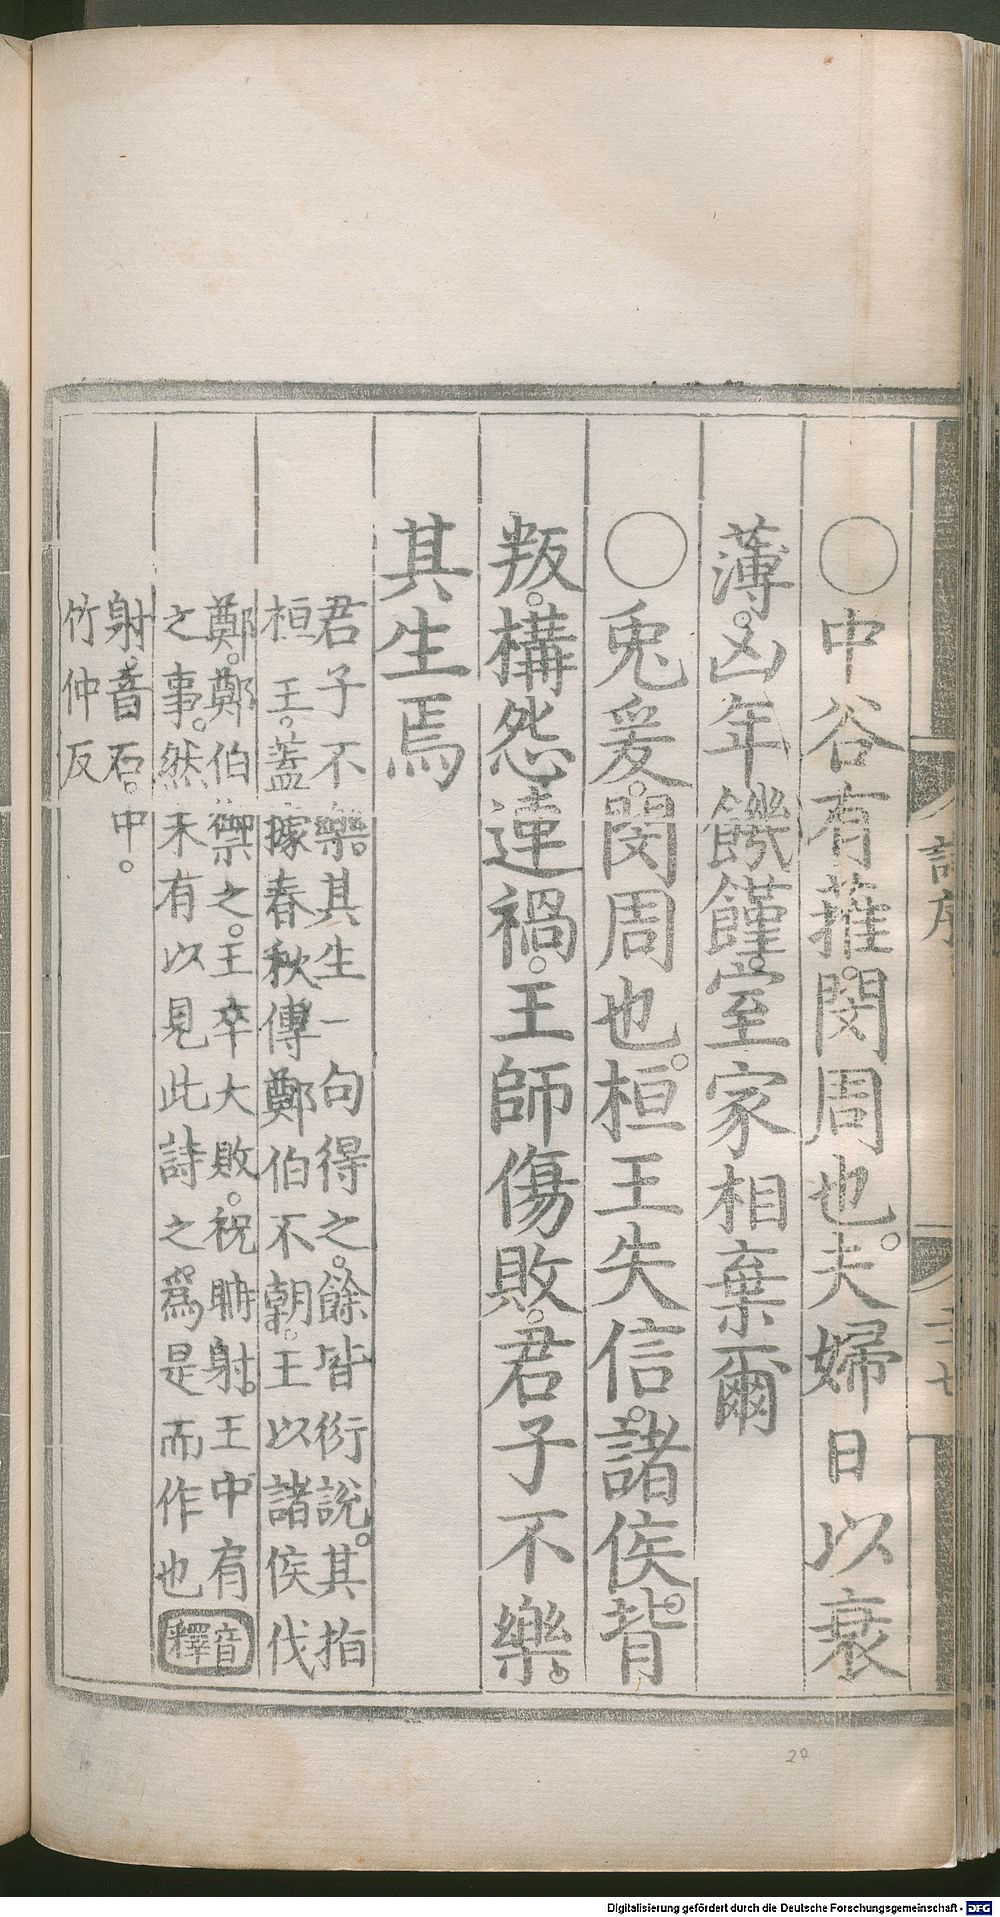 詩序
二十七
〇中谷有蓷。閔周也。夫婦日以衰
薄。凶年饑饉。室家相棄爾
〇兎爰。閔周也。桓王失信。諸侯背
叛。構怨連禍。王師傷敗。君子不樂。
其生焉
君子不樂。其生一句得之。餘皆衍說。其指
桓王。蓋據春秋傳鄭伯不朝。王以諸侯伐
鄭。鄭伯禦之。王卒大敗。祝聃射。王中肩音
之事。然未有以見此詩之。爲是而作也釋
射。音石。中。
竹仲反
27
Digitalisierung gefördert durch die Deutsche Forschungsgemeinschaft - DFG